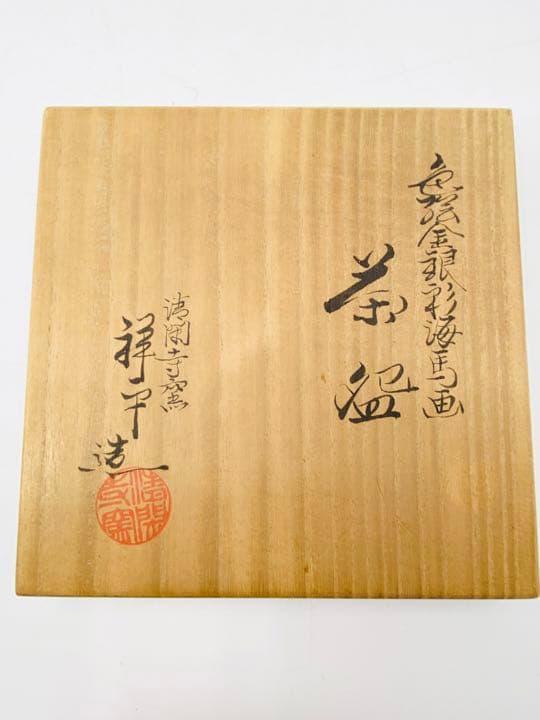 色絵金銀彩海馬画
茶盌
清閑寺窯
祥平造
清閑寺窯